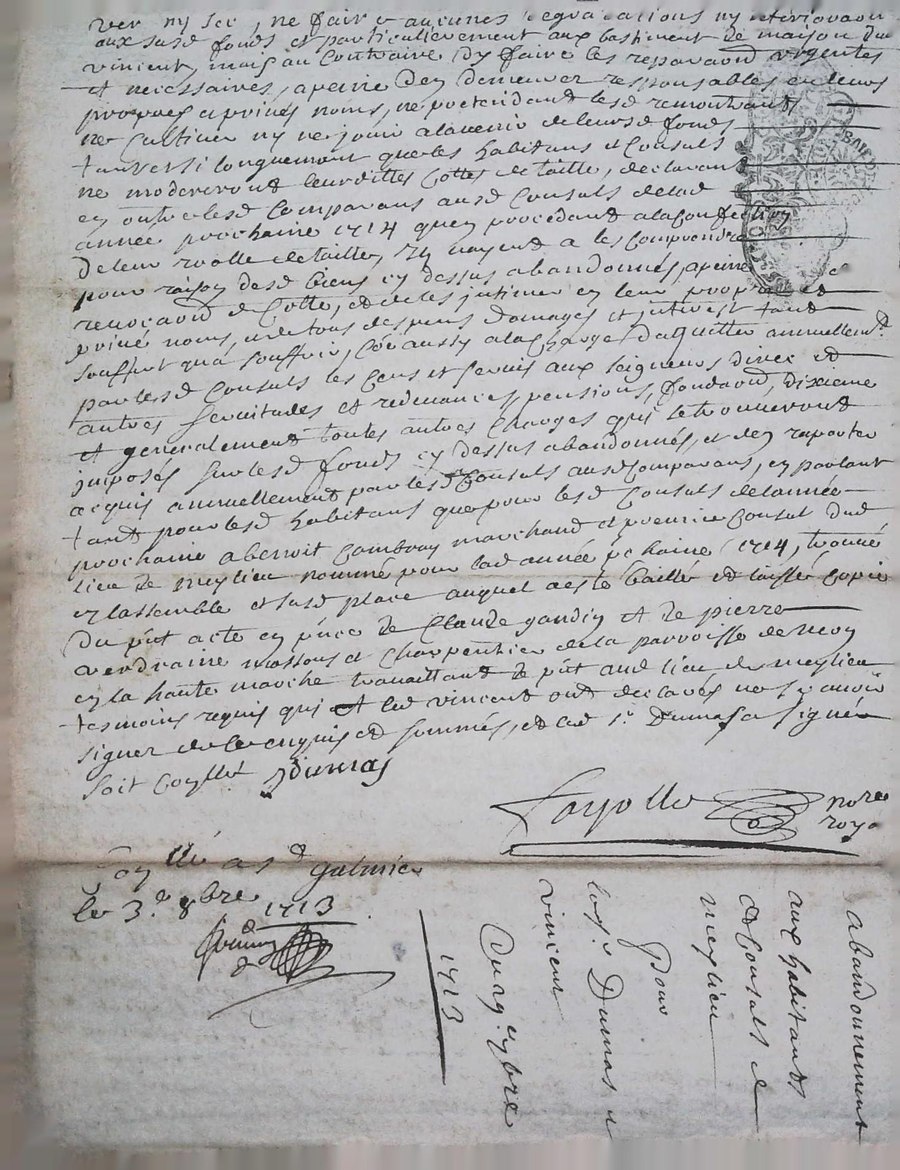 ver ny sec, ne faire aucunes degradations ny deterioraon
aux susd fonds et particulierement aux bastiment de maison du
vincent, mais au contraire dy faire les reparaons urgentes
et necessaires, a peine den demeurer responsables en leurs
propres et privés noms, ne pretendant lesd remontrants
ne cultiver ny ne jouir a lavenir de leursd fonds
tant et si longuement que les habitans et Consuls
ne modereront leurdittes Cottes de taille, declarans
en outre lesd Comparans ausd Consuls delad
année prochaine 1714 quen procedant a la confection
de leur rolle de tailles, ils nayent a les comprendre
pour raison desd biens cy dessus abandonnés, a peine de
revocaon de Cotte, et de les intimer en leur propre et
privé noms, et de tous despens domages et interest tant
souffert qua souffrir, Ce aussy a la charge dacquitter annuellemt
par lesd Consuls les cens et servis aux seigneurs direc et
autres servitudes et redevances, pensions, fondaon, dixieme
et generalement toutes autres charges qui se trouveront
imposés sur lesd fonds cy dessus abandonnés, et den raporter
acquis annuellement par lesd Consuls ausd Comparans, en parlant
tant pour lesd habitans que pour lesd Consuls de lannée
prochaine a benoit Combray marchand et premier Consul dud
lieu de meylieu nommé pour lad année pchaine 1714, trouvé
en lassemblé et susd place auquel a esté baillé et laissé copie
du pnt acte en pnce de Claude gaudin et de pierre
massons et charpentier de la parroisse de
en la haute marche travaillant de pnt aud lieu de meylieu
tesmoins requis qui et led vincent ont declarés ne scavoir
signer de ce enquis et sommés, et led sr Dumas a signé
soit Contllé Dumas
Fayolle nore
royal
Contllé a st galmier
le 3e 8bre 1713
abandonnement
aux habitants
et Consuls de
meylieu
Pour
Dumas et
vincent
Du 29. 7bre
1713